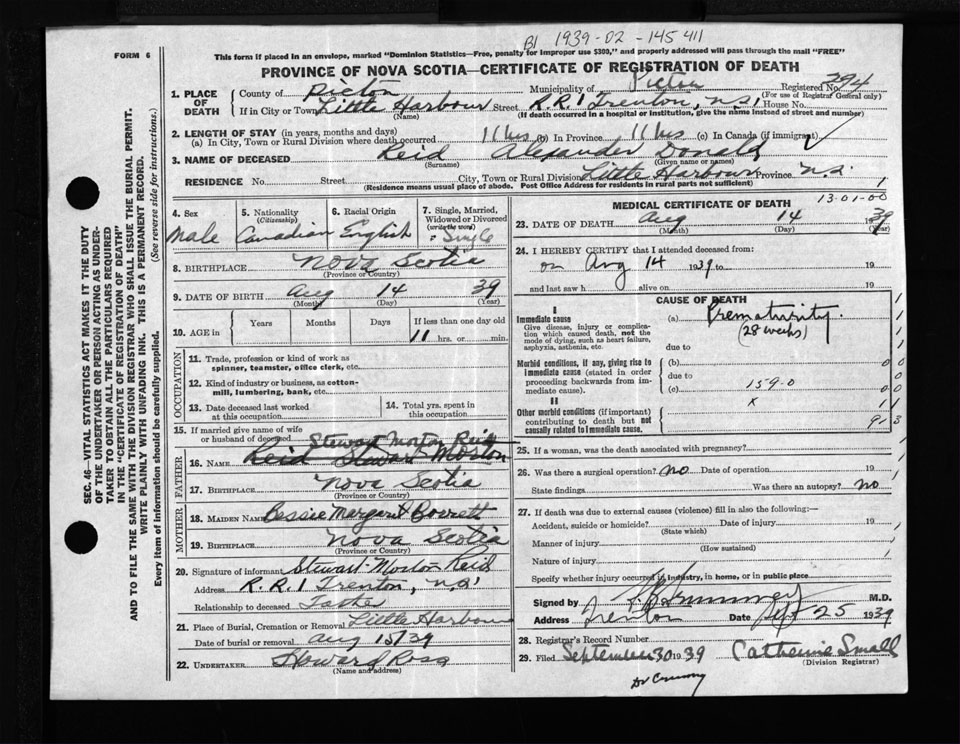 B1 1939-02-145411
FORM 6
This form if placed in an envelope, marked "Dominion Statistics—Free, penalty for improper use $300," and properly addressed will pass through the mail "FREE"
PROVINCE OF NOVA SCOTIA—CERTIFICATE OF REGISTRATION OF DEATH
1. PLACE OF DEATH County of Pictou Municipality of Pictou Registered No. 394
(For use of Registrar General only)
If in City or Town Little Harbour Street R.R.1 Trenton, N.S. House No.
(Name) (If death occurred in a hospital or institution, give the name instead of street and number)
2. LENGTH OF STAY (in years, months and days)
(a) In City, Town or Rural Division where death occurred 11 hrs (b) In Province 11 hrs (c) In Canada (if immigrant)
3. NAME OF DECEASED Reid Alexander Donald
(Surname) (Given name or names)
RESIDENCE No. Street City, Town or Rural Division Little Harbour Province N.S. 1
(Residence means usual place of abode. Post Office Address for residents in rural parts not sufficient)
4. Sex
Male
5. Nationality
(Citizenship)
Canadian
6. Racial Origin
English
7. Single, Married, Widowed or Divorced
(write the word)
8. BIRTHPLACE Nova Scotia
(Province or Country)
9. DATE OF BIRTH Aug 14 39
(Month) (Day) (Year)
10. AGE in Years Months Days If less than one day old
11 hrs. or min.
OCCUPATION
11. Trade, profession or kind of work as spinner, teamster, office clerk, etc.
12. Kind of industry or business, as cotton-mill, lumbering, bank, etc.
13. Date deceased last worked at this occupation
14. Total yrs. spent in this occupation
15. If married give name of wife or husband of deceased
Stewart Morton Reid
FATHER
16. Name Reid Stewart Morton
17. Birthplace Nova Scotia
(Province or Country)
MOTHER
18. Maiden Name Bessie Margaret
19. Birthplace Nova Scotia
(Province or Country)
20. Signature of informant Stewart Morton Reid
Address R.R.1 Trenton, N.S.
Relationship to deceased
21. Place of Burial, Cremation or Removal Little Harbour
Date of burial or removal Aug 15/39
22. UNDERTAKER Howard Ross
(Name and address)
MEDICAL CERTIFICATE OF DEATH 13-01-00
23. DATE OF DEATH Aug 14 39
(Month) (Day) (Year)
24. I HEREBY CERTIFY that I attended deceased from:
on Aug 14 1939 to 19
and last saw h alive on 19
CAUSE OF DEATH
I
Immediate cause (a) Prematurity.
(28 weeks)
Give disease, injury or complication which caused death, not the mode of dying, such as heart failure, asphyxia, asthenia, etc.
due to
Morbid conditions, if any, giving rise to immediate cause (stated in order proceeding backwards from immediate cause).
(b)
due to
(c) 159-0
II
x
Other morbid conditions (if important) contributing to death but not causally related to immediate cause.
25. If a woman, was the death associated with pregnancy?
26. Was there a surgical operation? No Date of operation 19
State findings Was there an autopsy? No
27. If death was due to external causes (violence) fill in also the following:—
Accident, suicide or homicide? Date of injury 19
(State which)
Manner of injury
(How sustained)
Nature of injury
Specify whether injury occurred in industry, in home, or in public place
Signed by M.D.
Address Trenton Date Sept 25 1939
28. Registrar's Record Number
29. Filed September 30 1939 Catherine Small
(Division Registrar)
SEC. 46—VITAL STATISTICS ACT MAKES IT THE DUTY
OF THE UNDERTAKER OR PERSON ACTING AS UNDER-
TAKER TO OBTAIN ALL THE PARTICULARS REQUIRED
IN THE "CERTIFICATE OF REGISTRATION OF DEATH"
AND TO FILE THE SAME WITH THE DIVISION REGISTRAR WHO SHALL ISSUE THE BURIAL PERMIT.
WRITE PLAINLY WITH UNFADING INK. THIS IS A PERMANENT RECORD.
Every item of information should be carefully supplied. (See reverse side for instructions.)